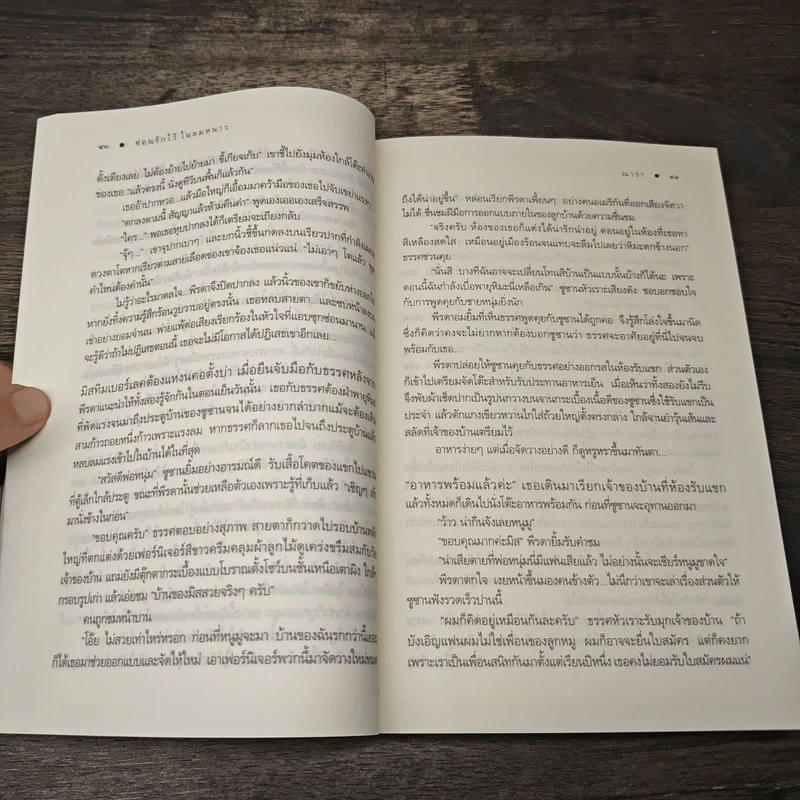 ๔๐ • ซ่อนรักไว้ในลมหนาว
ตั้งเตียงเลย ไม่ต้องย้ายไปย้ายมา ขี้เกียจเก็บ” เขาชี้ไปยังมุมห้องใกล้โต๊ะทำงาน
ของเธอ “แล้วตรงนี้ นั่งดูทีวีบนพื้นก็แล้วกัน”
เธออ้าปากหวอ...แล้วมือใหญ่ก็เอื้อมมาคว้ามือของเธอไปจับเขย่าแรงๆ
“ตกลงตามนี้ สัญญาแล้วห้ามคืนคำ” พูดเองเออเองเสร็จสรรพ
“ใคร...” พอเธอหุบปากลงได้ก็เตรียมจะเถียงกลับ
“จุ๊ๆ...” เขาจุปากเบาๆ และยกนิ้วชี้ขึ้นกดลงบนเรียวปากที่กำลังเผยอ
ดวงตาโตหากเรียวตามสายเลือดของเขาจ้องเธอแน่วแน่ “ไม่เอาๆ โตแล้ว พูด
คำไหนต้องคำนั้น”
ไม่รู้ว่าอะไรมาดลใจ...พีรดาจึงปิดปากลง แล้วนิ้วของเขาก็ขยับห่างออกไป
หากยังทิ้งความรู้สึกร้อนวูบวาบอยู่ตรงนั้น เธอหลบสายตา...และซบหน้าลงบน
เข่าอย่างยอมจำนน พ่ายแพ้ต่อเสียงเรียกร้องในหัวใจที่แอบซุกซ่อนมานาน แม้
จะรู้ดีว่าถ้าไม่ปฏิเสธตอนนี้ เธอจะไม่มีโอกาสได้ปฏิเสธเขาอีกเลย...
มิสทิมเบอร์เลคต้องแหงนคอตั้งบ่า เมื่อยืนจับมือกับธรรศหลังจาก
พีรดาแนะนำให้ทั้งสองรู้จักกันในตอนเย็นวันนั้น เธอกับธรรศต้องฝ่าพายุหิมะ
ที่พัดแรงจนมาถึงประตูบ้านของซูซานจนได้อย่างยากลำบากแม้จะต้องเดิน
สามก้าวถอยหนึ่งก้าวเพราะแรงลม หากธรรศก็ลากเธอไปจนถึงประตูบ้านแล้ว
หลบลมแรงเข้าไปในบ้านได้ในที่สุด
“สวัสดีพ่อหนุ่ม” ซูซานยิ้มอย่างอารมณ์ดี รับเสื้อโคตของแขกไปแขวน
ที่ตู้เล็กใกล้ประตู ขณะที่พีรดานั้นช่วยเหลือตัวเองเพราะรู้ที่เก็บแล้ว “เชิญๆ เข้า
มานั่งข้างในก่อน”
“ขอบคุณครับ” ธรรศตอบอย่างสุภาพ สายตาก็กวาดไปรอบบ้านหลัง
ใหญ่ที่ตกแต่งด้วยเฟอร์นิเจอร์สีขาวครีมคลุมผ้าลูกไม้ดูเคร่งขรึมสมกับวัย
เจ้าของบ้าน แถมยังมีตุ๊กตากระเบื้องแบบโบราณตั้งโชว์บนชั้นเหนือเตาผิง ใกล้
กรอบรูปเก่า แล้วเอ่ยชม “บ้านของมิสสวยจริงๆ ครับ”
คนถูกชมหน้าบาน
“โอ๊ย ไม่สวยเท่าไหร่หรอก ก่อนที่หนูมูจะมา บ้านของฉันรกกว่านี้เยอะ
ก็ได้เธอมาช่วยออกแบบและจัดให้ใหม่ เอาเฟอร์นิเจอร์พวกนี้มาจัดวางใหม่หมด
ณารา • ๔๑
ถึงได้น่าอยู่ขึ้น” หล่อนเรียกพีรดาเพี้ยนๆ อย่างคนอเมริกันที่ออกเสียงจัตวา
ไม่ได้ ชื่นชมฝีมือการออกแบบภายในของลูกบ้านด้วยความชื่นชม
“จริงครับ ห้องของเธอก็แต่งได้น่ารักน่าอยู่ ตอนอยู่ในห้องที่เธอทา
สีเหลืองสดใส เหมือนอยู่เมืองร้อนจนแทบจะลืมไปเลยว่าหิมะตกข้างนอก”
ธรรศชวนคุย
“นั่นสิ บางทีฉันอาจจะเปลี่ยนโทนสีบ้านเป็นแบบนั้นบ้างก็ได้นะ เพราะ
ตอนนี้ฉันกำลังเบื่อพายุหิมะนี่เหลือเกิน” ซูซานหัวเราะเสียงดัง ชอบอกชอบใจ
กับการพูดคุยกับชายหนุ่มยิ่งนัก
พีรดาอมยิ้มที่เห็นธรรศพูดคุยกับซูซานได้ถูกคอ จึงรู้สึกโล่งใจขึ้นมานิด
ซึ่งก็คิดว่าคงจะไม่ยากหากต้องบอกซูซานว่า ธรรศจะอาศัยอยู่ที่นี่ไปจนจบ
พร้อมกับเธอ...
พีรดาปล่อยให้ซูซานคุยกับธรรศอย่างออกรสในห้องรับแขก ส่วนตัวเอง
ก็เข้าไปเตรียมจัดโต๊ะสำหรับรับประทานอาหารเย็น เมื่อเห็นว่าทั้งสองยังไม่รีบ
จึงพับผ้าเช็ดปากเป็นรูปกนางวางบนจานกระเบื้องเนื้อดีของซูซานซึ่งใช้รับแขกเป็น
ประจำ แล้วตักแกงเขียวหวานไก่ใส่ถ้วยใหญ่ตั้งตรงกลาง ใกล้จานยำวุ้นเส้นและ
สลัดที่เจ้าของบ้านเตรียมไว้
อาหารง่ายๆ แต่เมื่อจัดวางอย่างดี ก็ดูหรูหราขึ้นมาทันตา...
“อาหารพร้อมแล้วค่ะ” เธอเดินมาเรียกเจ้าของบ้านที่ห้องรับแขก
แล้วทั้งหมดก็เดินไปนั่งโต๊ะอาหารพร้อมกัน ก่อนที่ซูซานจะอุทานออกมา
“ว้าว น่ากินจังเลยหนูมู”
“ขอบคุณมากค่ะมิส” พีรดายิ้มรับคำชม
“น่าเสียดายที่พ่อหนุ่มนี่มีแฟนเสียแล้ว ไม่อย่างนั้นจะเชียร์หนูมูขาดใจ”
พีรดาตกใจ เงยหน้าขึ้นมองคนข้างตัว...ไม่นึกว่าเขาจะเล่าเรื่องส่วนตัวให้
ซูซานฟังรวดเร็วปานนี้
“ผมก็คิดอยู่เหมือนกันละครับ” ธรรศหัวเราะรับมุกเจ้าของบ้าน “ถ้า
บังเอิญแฟนผมไม่ใช่เพื่อนของลูกหมู ผมก็อาจจะยื่นใบสมัคร แต่ก็คงยาก
เพราะเราเป็นเพื่อนสนิทกันมาตั้งแต่เรียนปีหนึ่ง เธอคงไม่ยอมรับใบสมัครผมแน่”